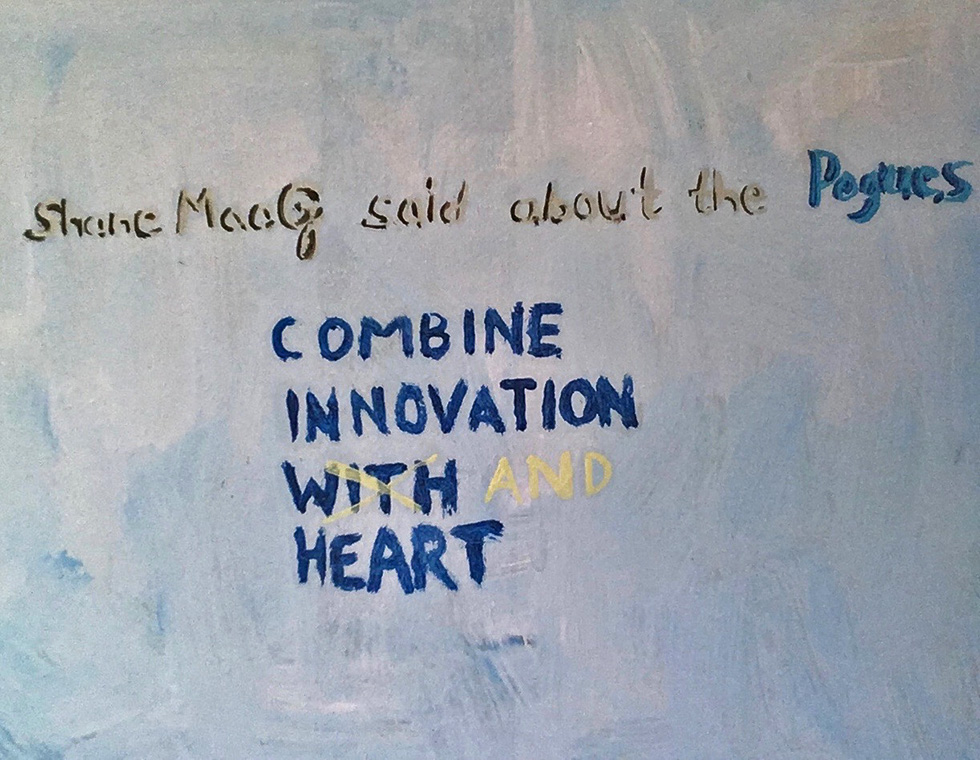 Shane MacG said about the Pogues
COMBINE
INNOVATION
WITH AND
HEART